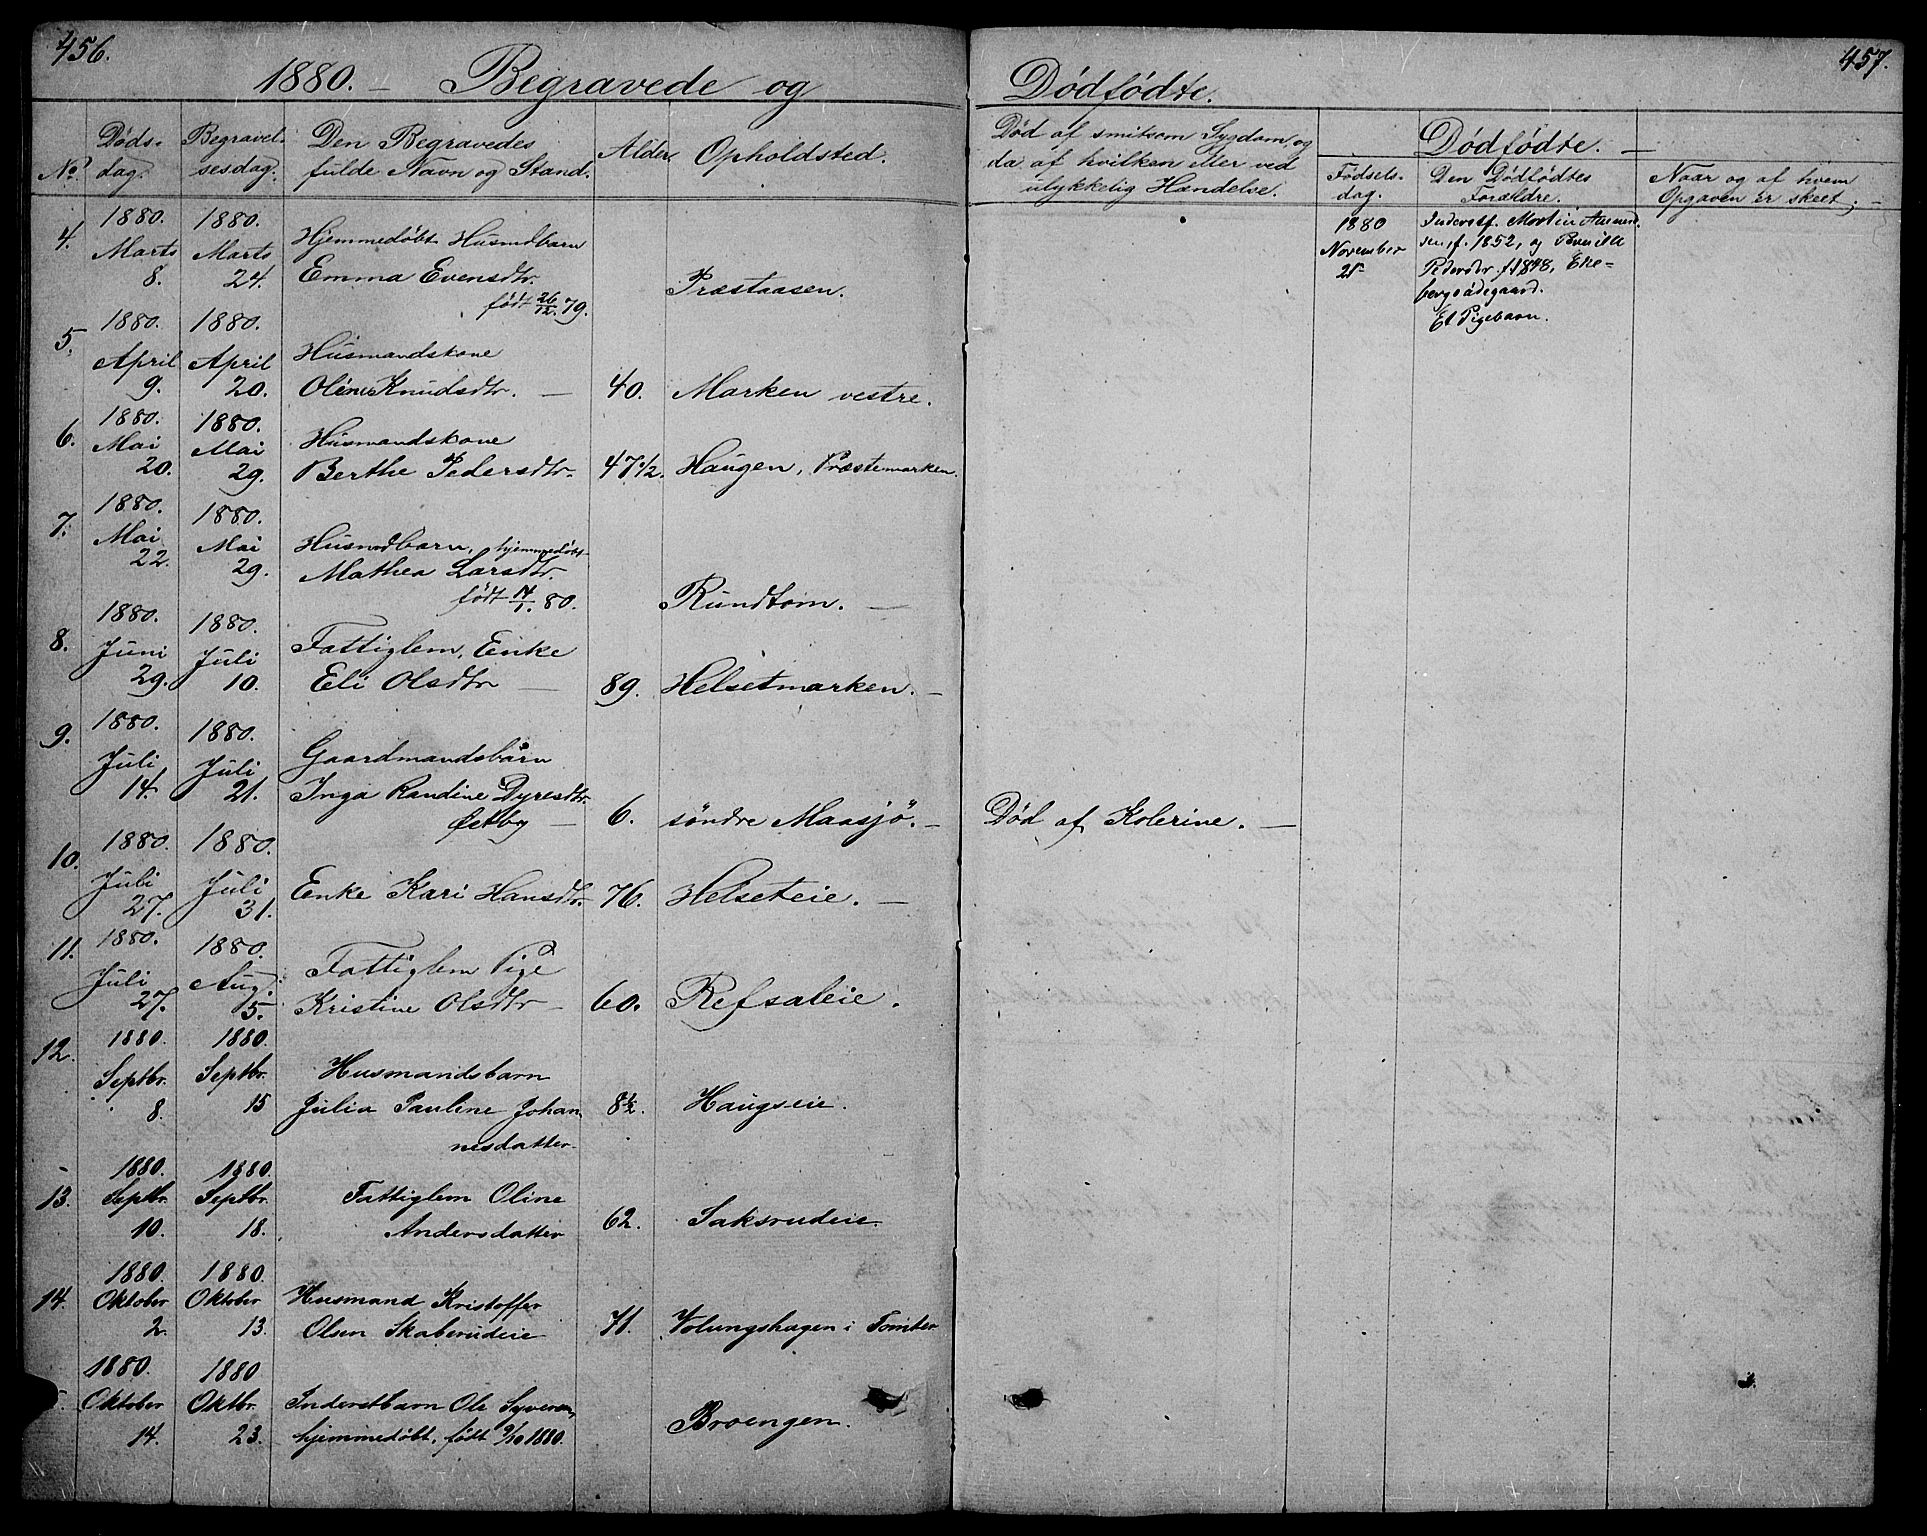 456.
1880. — Begravede og
No.
Døds-
dag.
Begravel-
sesdag.
Den Begravedes
fulde Navn og Stand.
Alder.
Opholdsted.
4.
1880.
Marts
8.
1880.
Marts
24.
Hjemmedøbt Husmdbarn
Emma Evensdtr.
født 26/12. 79.
Præstaasen.
5.
1880.
April
9.
1880.
April
20.
Husmandskone
Oline Knudsdtr. —
40.
Marken vestre.
6.
1880.
Mai
20.
1880.
Mai
29.
Husmandskone
Berthe Pedersdtr.
47 1/2.
Haugen, Præstemarken.
7.
1880.
Mai
22.
1880.
Mai
29.
Husmdbarn, hjemmedøbt
Mathea Larsdtr.
født 14/1. 80.
Rundtom. —
8.
1880.
Juni
29.
1880.
Juli
10.
Fattiglem, Enke
Eli Olsdtr —
89.
Helsetmarken. —
9.
1880.
Juli
14.
1880.
Juli
21.
Gaardmandsbarn
Inga Randine Dyresdtr.
Østby —
6.
søndre Maasjö. —
10.
1880.
Juli
27.
1880.
Juli
31.
Enke Kari Hansdtr.
76.
Helseteie. —
11.
1880.
Juli
27.
1880.
Aug.
5.
Fattiglem Pige
Kristine Olsdtr —
60.
Refsaleie.
12.
1880.
Septbr.
8.
1880.
Septbr.
15
Husmandsbarn
Julia Pauline Johan
nesdatter
8 1/2.
Haugseie.
13.
1880.
Septbr.
10.
1880.
Septbr.
18.
Fattiglem Oline
Andersdatter
62.
Saksrudeie
14.
1880.
Oktober
2.
1880.
Oktober
13.
Husmand Kristoffer
Olsen Skaberudeie
71.
Volungshagen i Tomter
1880.
Oktober
14.
1880
Oktbr.
23.
Inderstbarn Ole Syversen,
hjemmedøbt, født 9/10 1880.
Broengen.
457.
Dødfødte.
Død af smitsom Sygdom og
da af hvilken eller ved
ulykkelig Hændelse.
Dødfødte. —
Fødsels-
dag.
Den Dødfødtes
Forældre.
Naar og af hvem
Opgaven er skeet. —
1880
November
25
Inderstf. Martin
sen, f. 1852, og Pernille
Pedersdtr. f. 1848, Eke-
bergødegaard.
Et Pigebarn.
Død af Kolerine. —